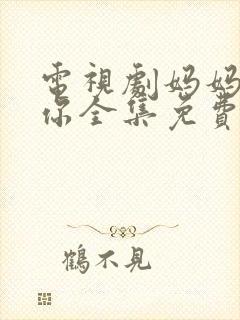 電視劇妈妈
你全集免費
鶴不見